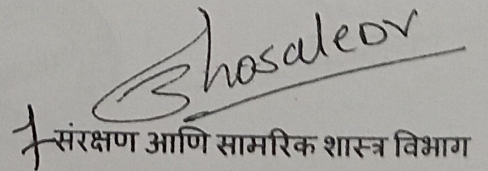 Bhosaleov
संरक्षण आणि सामरिक शास्त्र विभाग